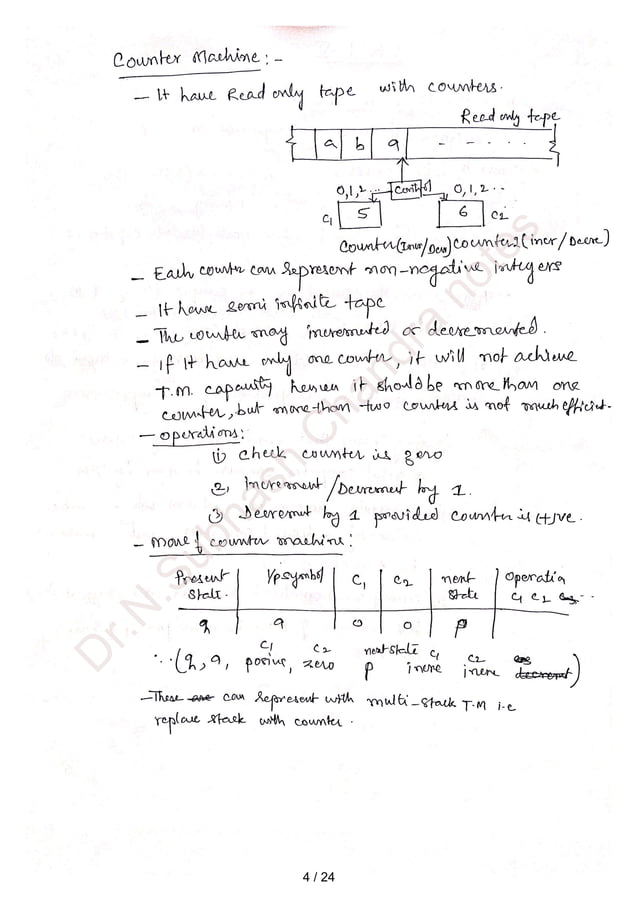 Counter Machine:-
- It have Read only tape with counters.
Read only tape
a b a - - . . .
0,1,2 ... Control 0,1,2 ..
C1 5 6 C2
Counter(Incr/Decr) Counter2(incr/Decre)
- Each counter can represent non-negative integers
- It have semi infinite tape
- The counter may incremented or decremented.
- if it have only one counter, it will not achieve
T.M. capacity hence it should be more than one
counter, but more than two counters is not much efficient.
- operations:
(1) check counter is zero
(2) Increment/Decrement by 1.
(3) Decremnt by 1 provided counter is (+)ve.
- move of counter machine:
Present I/p symbol C1 C2 next Operation
state. state C1 C2
q a 0 0 P
C1 C2 next state C1 C2
(q, a, positive, zero P incre incre decrement)
- These are can represent with multi-stack T.M i.e
replace stack with counter.
Dr.N.Subhash Chandra notes
4 / 24